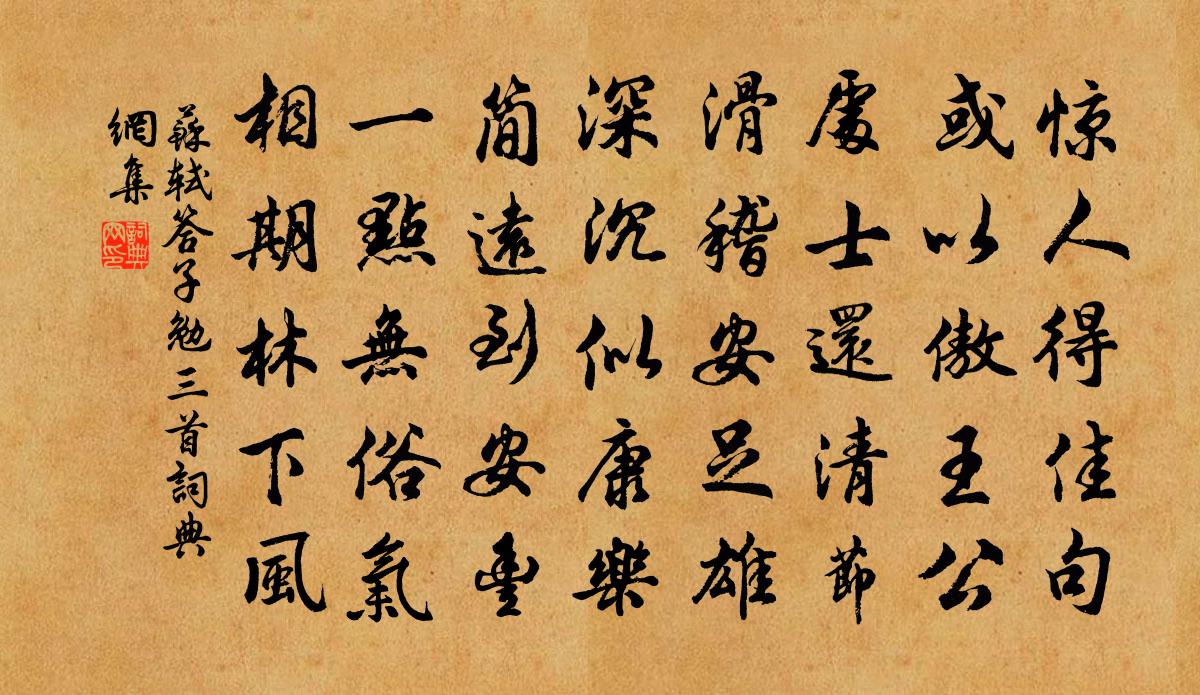 惊人得佳句
或以傲王公
處士還清節
滑稽安足雄
深沉似康樂
簡遠到安豐
一點無俗氣
相期林下風
蘇軾答子勉三首詞典
網集
詞典網印